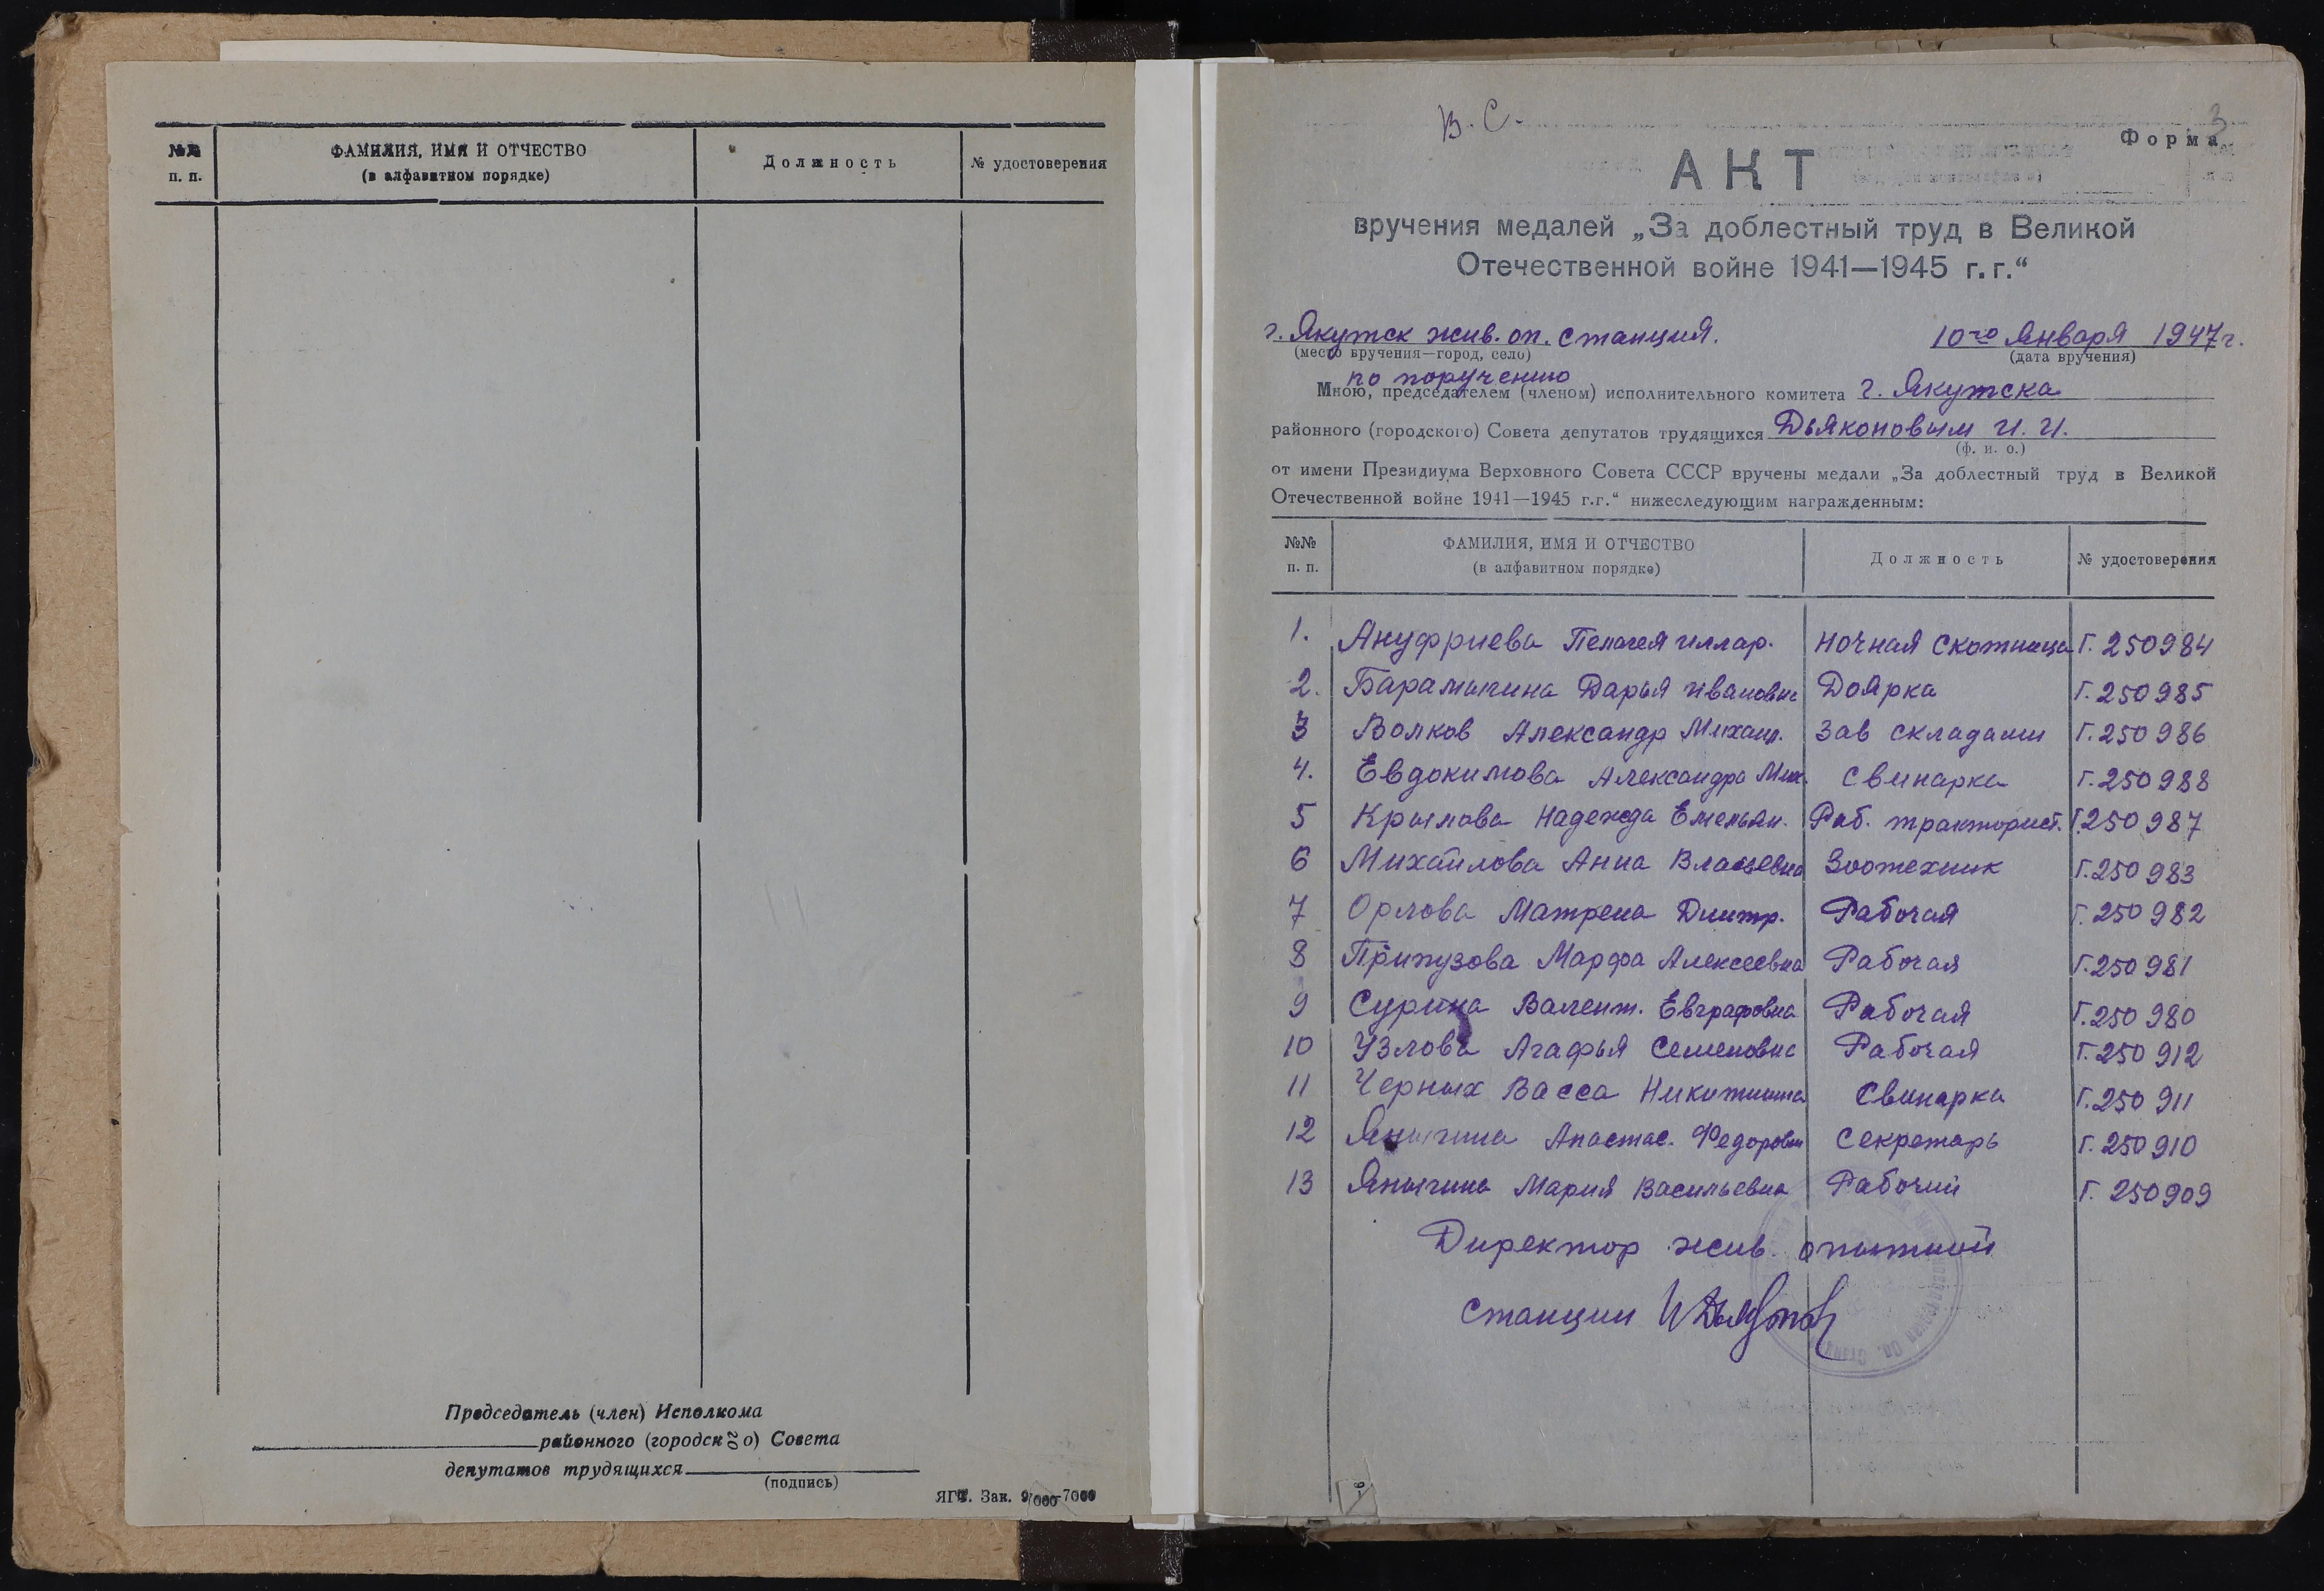 №№
п. п.
ФАМИЛИЯ, ИМЯ И ОТЧЕСТВО
(в алфавитном порядке)
Должность
№ удостоверения
Председатель (член) Исполкома
районного (городского) Совета
депутатов трудящихся
(подпись)
В. С.
3
Форма
АКТ
вручения медалей „За доблестный труд в Великой
Отечественной войне 1941—1945 г.г.“
г. Якутск жив. оп. станция. 10го Января 1947 г.
(место вручения—город, село) (дата вручения)
по поручению
Мною, председателем (членом) исполнительного комитета г. Якутска
районного (городского) Совета депутатов трудящихся Дьяконовым И. И.
(ф. и. о.)
от имени Президиума Верховного Совета СССР вручены медали „За доблестный труд в Великой
Отечественной войне 1941—1945 г.г.“ нижеследующим награжденным:
№№
п. п.
ФАМИЛИЯ, ИМЯ И ОТЧЕСТВО
(в алфавитном порядке)
Должность
№ удостоверения
1. Ануфриева Пелагея Иллар. Ночная скотница Г. 250984
2. Барамыгина Дарья Ивановн Доярка Г. 250985
3 Волков Александр Михаил. Зав складами Г. 250986
4. Евдокимова Александра Мих. Свинарка Г. 250988
5 Крылова Надежда Емельян. Раб. тракторист. Г. 250987
6 Михайлова Анна Власьевна Зоотехник Г. 250983
7 Орлова Матрена Дмитр. Рабочая Г. 250982
8 Припузова Марфа Алексеевна Рабочая Г. 250981
9 Сурина Валент. Евграфовна Рабочая Г. 250980
10 Узлова Агафья Семеновна Рабочая Г. 250912
11 Черных Васса Никитишна Свинарка Г. 250911
12 Яныгина Анастас. Федоровн Секретарь Г. 250910
13 Яныгина Мария Васильевна Рабочий Г. 250909
Директор жив. опытной
станции